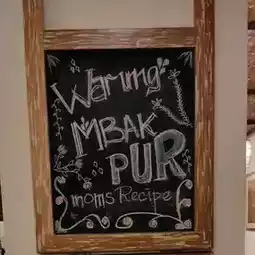 Warung
MBAK
PUR
moms Recipe